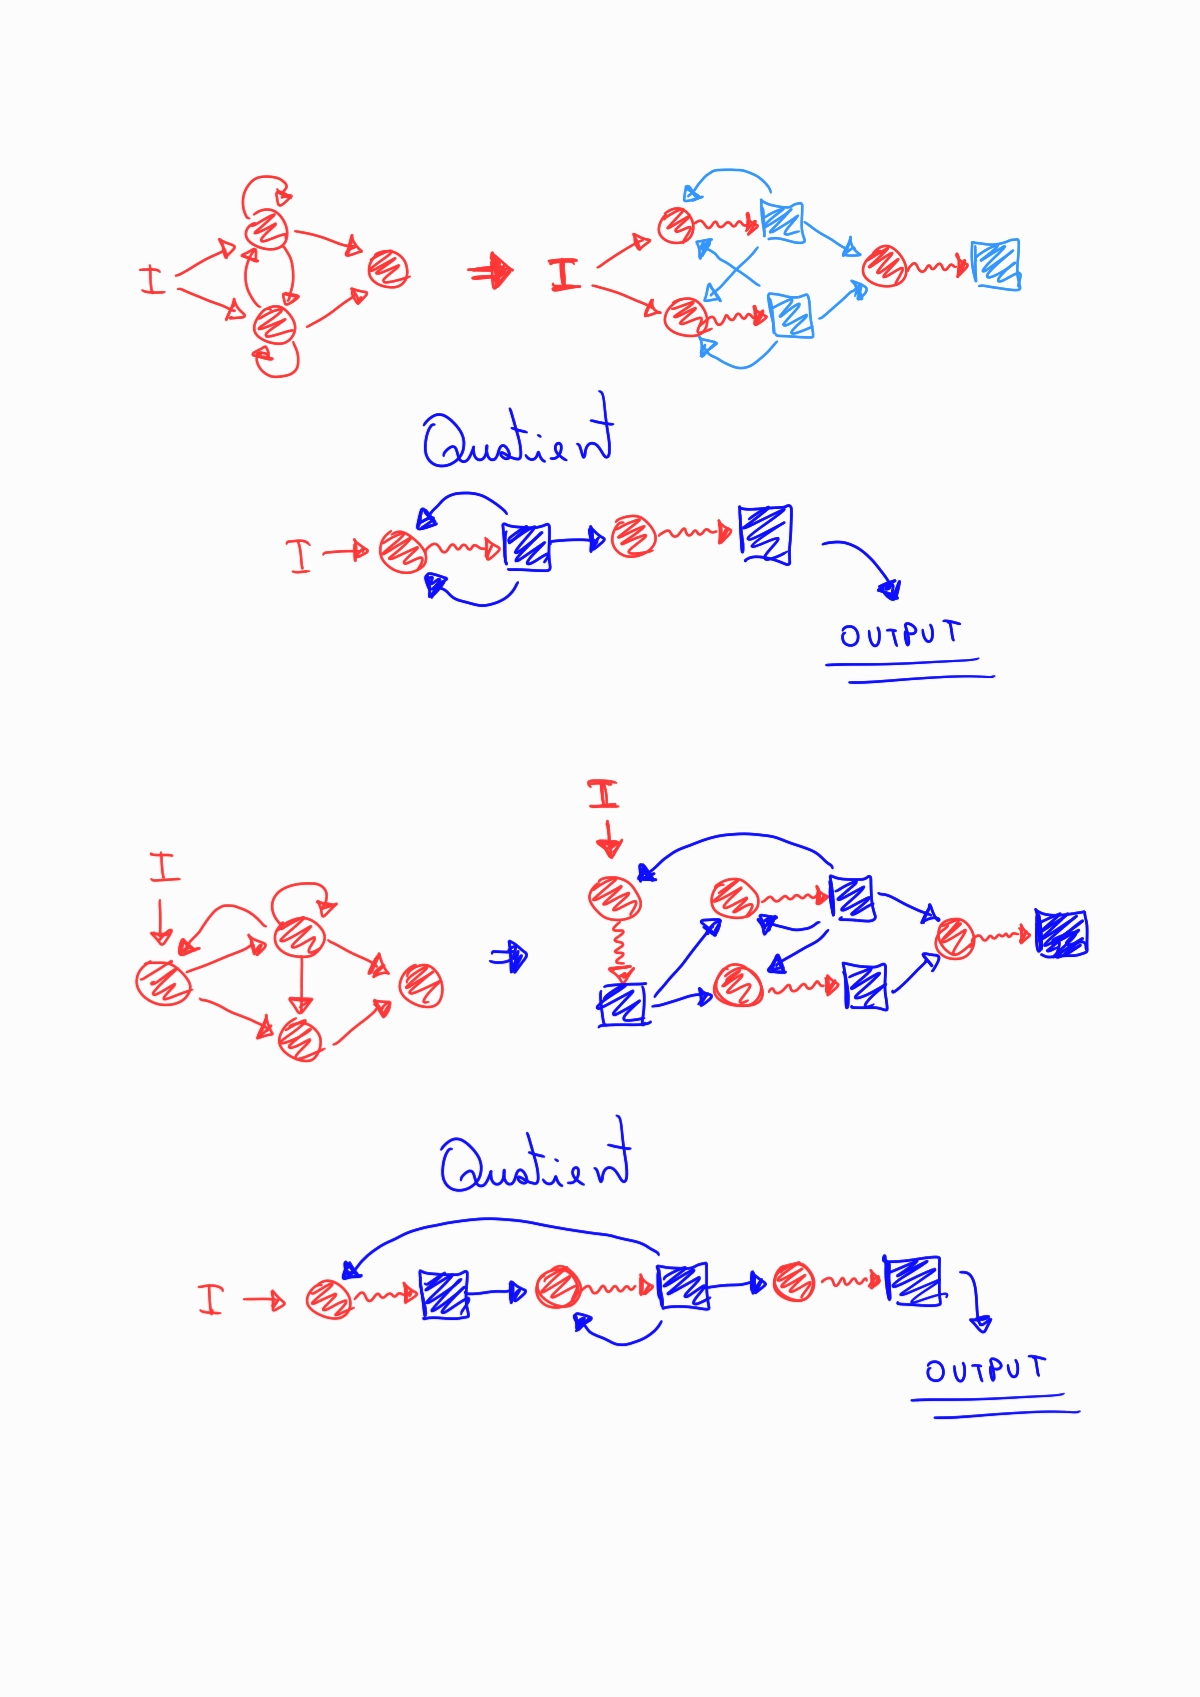 I
I
Quotient
I
OUTPUT
I
I
Quotient
I
OUTPUT